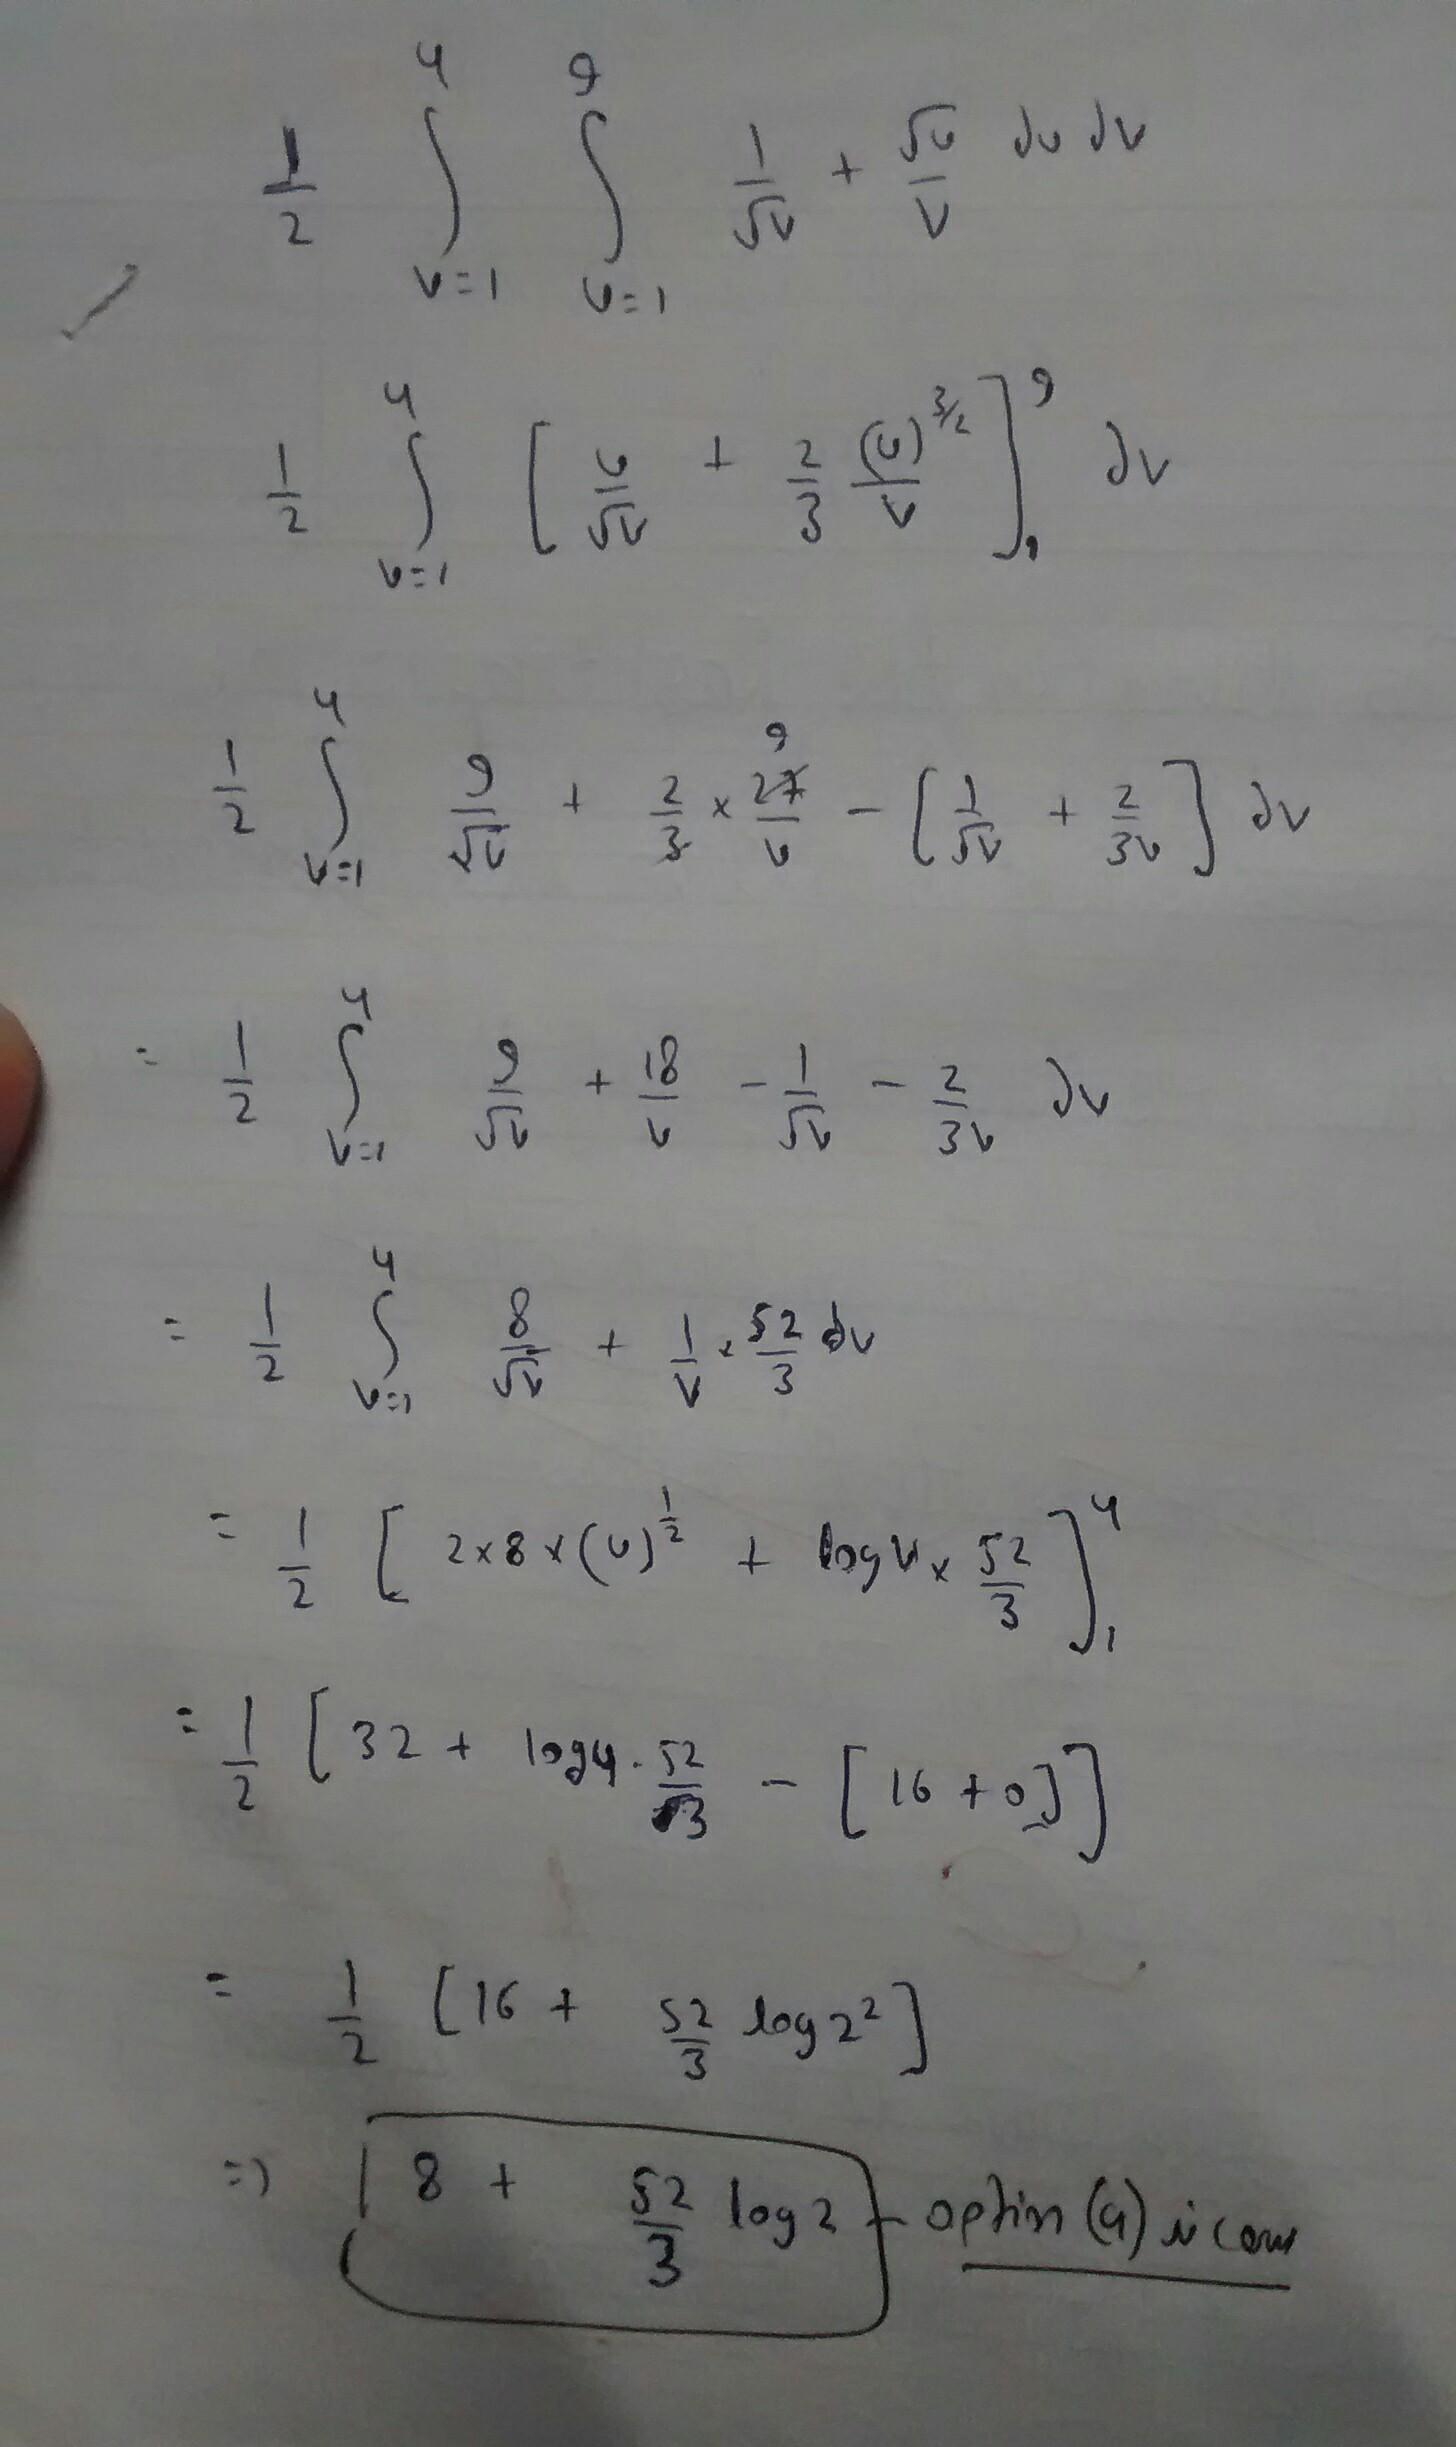 1/2 ∫_{v=1}^{4} ∫_{u=1}^{9} 1/√v + √u/v du dv
1/2 ∫_{v=1}^{4} [ u/√v + 2/3 (u)^{3/2}/v ]_{1}^{9} dv
1/2 ∫_{v=1}^{4} 9/√v + 2/3 × 27/v 9 - [ 1/√v + 2/3v ] dv
= 1/2 ∫_{v=1}^{4} 9/√v + 18/v - 1/√v - 2/3v dv
= 1/2 ∫_{v=1}^{4} 8/√v + 1/v × 52/3 dv
= 1/2 [ 2×8×(v)^{1/2} + log v × 52/3 ]_{1}^{4}
= 1/2 [ 32 + log 4 · 52/3 - [16 + 0] ]
= 1/2 [ 16 + 52/3 log 2² ]
⇒ 8 + 52/3 log 2 - option (a) is